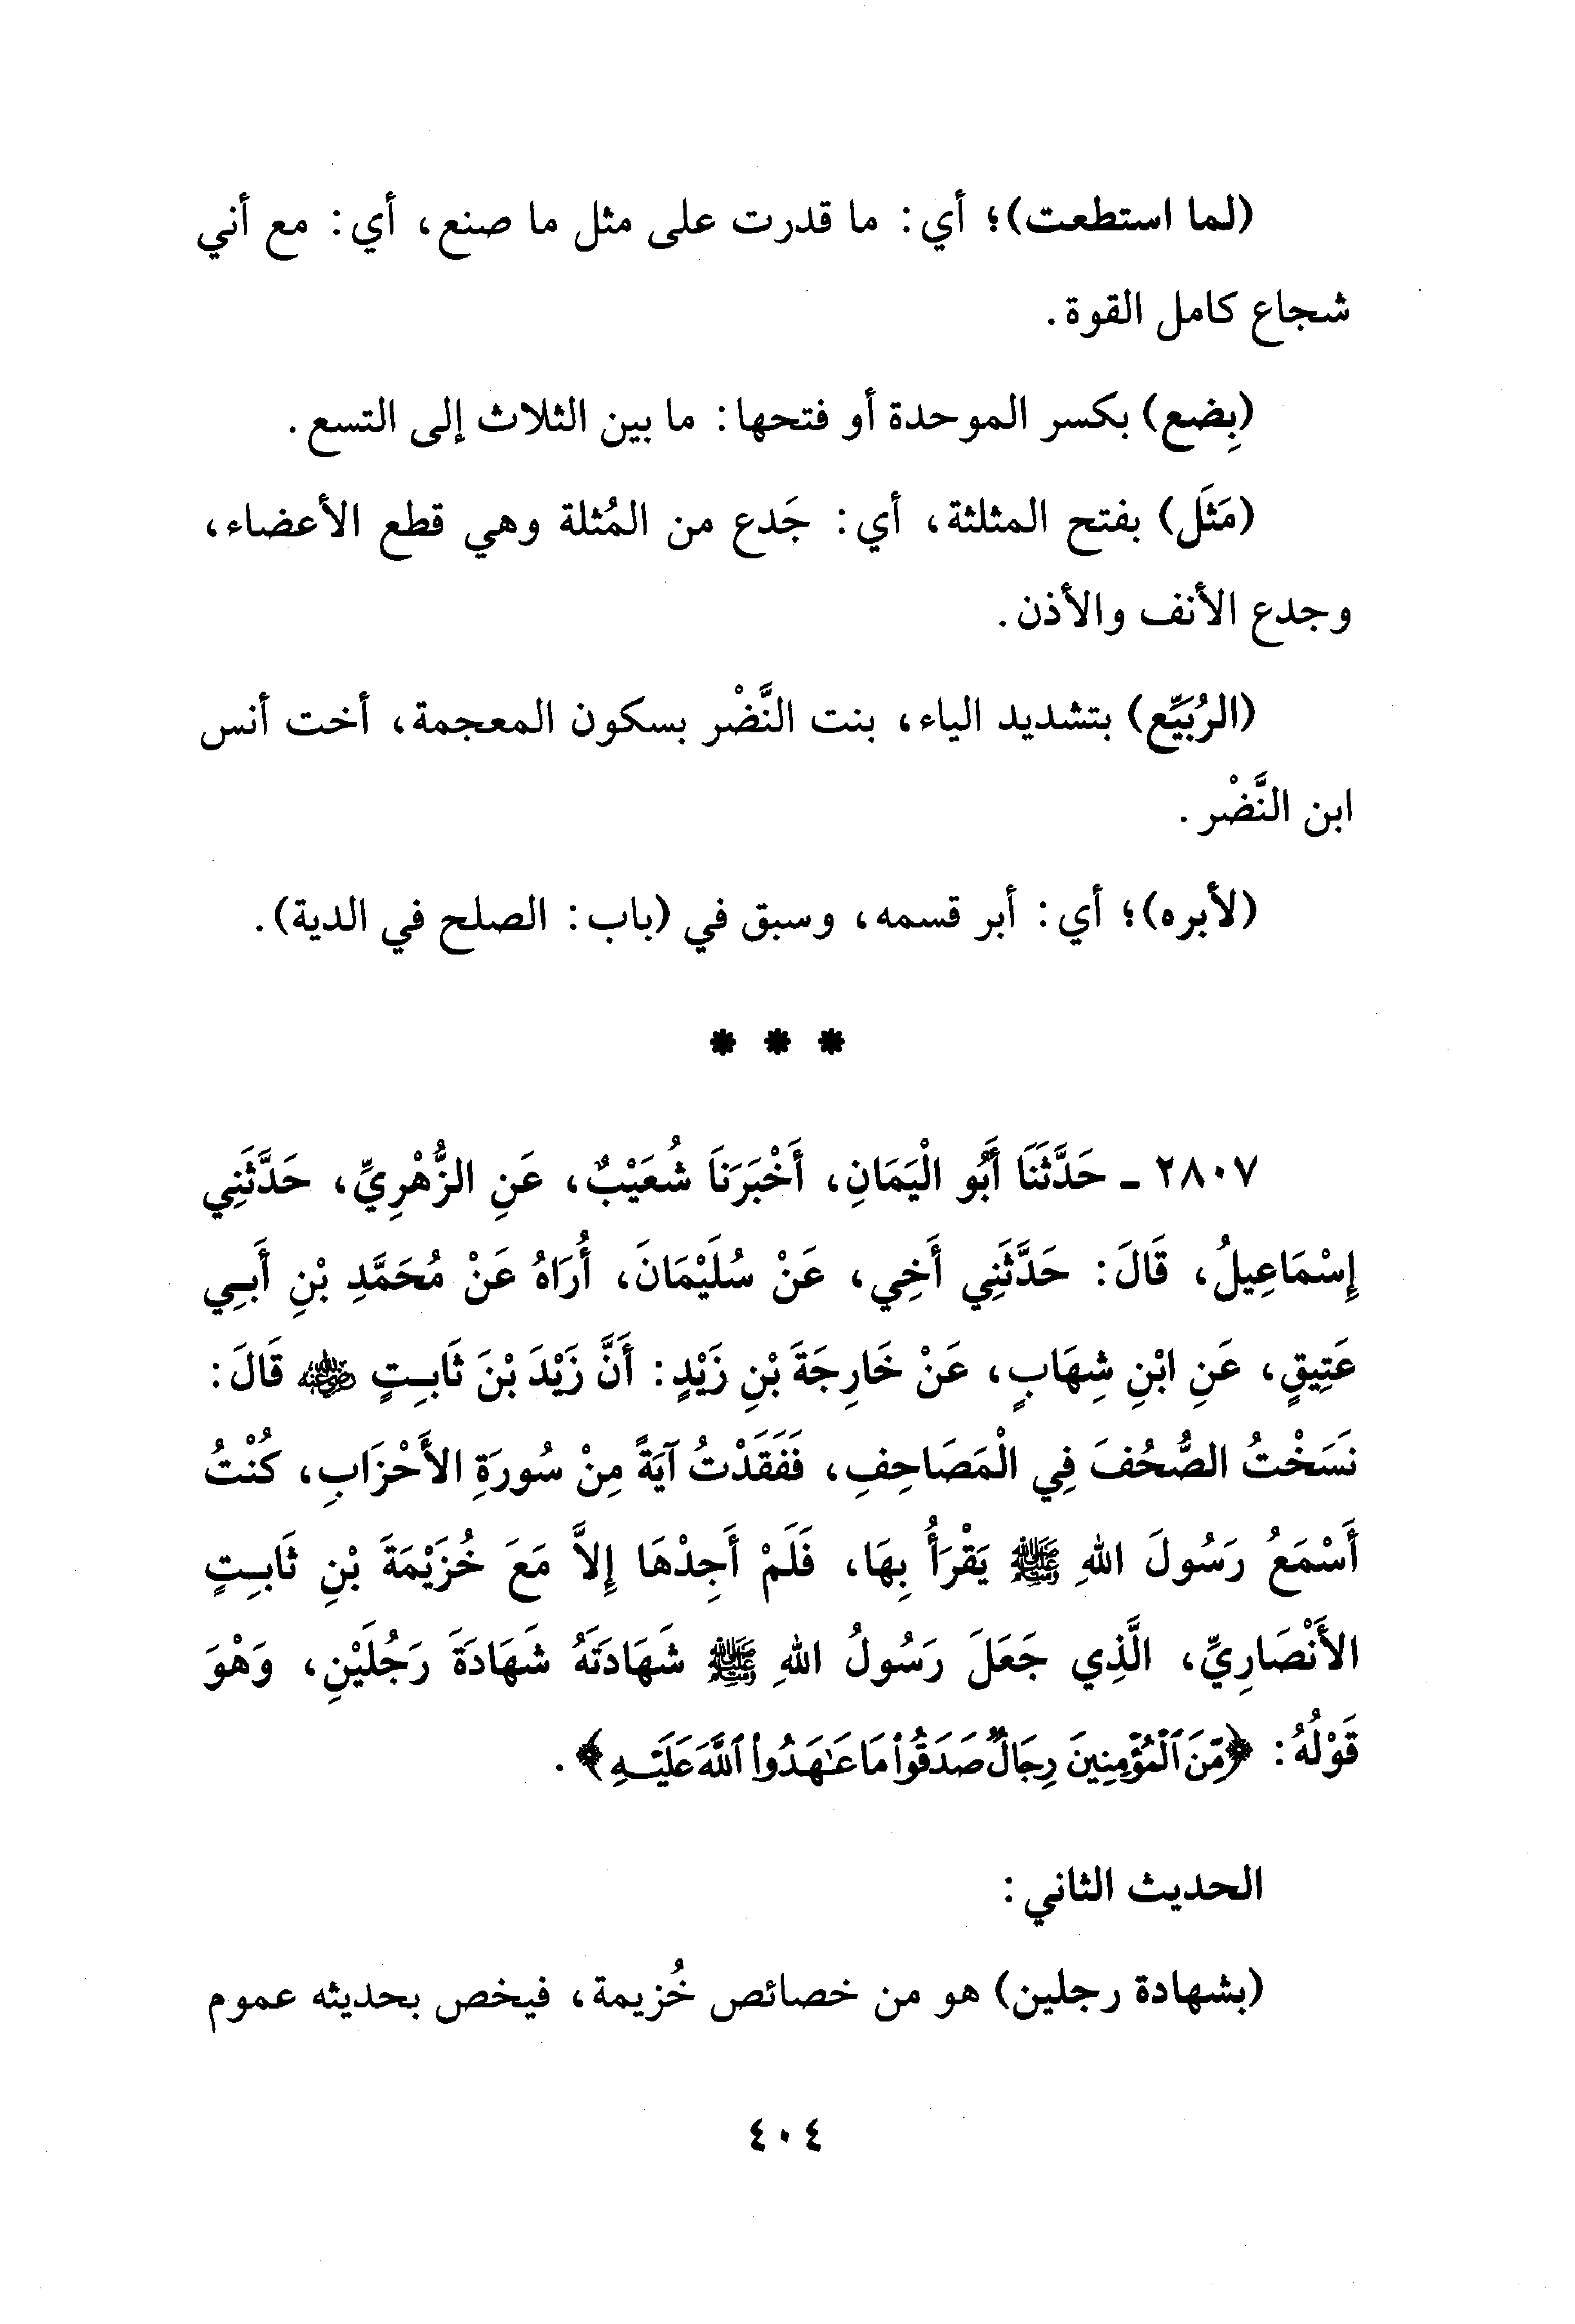 (لما استطعت)؛ أي: ما قدرت على مثل ما صنع، أي: مع أني
شجاع كامل القوة.
(بِضع) بكسر الموحدة أو فتحها: ما بين الثلاث إلى التسع.
(مَثَل) بفتح المثلثة، أي: جَدع من المُثلة وهي قطع الأعضاء،
وجدع الأنف والأذن.
(الرُبَيِّع) بتشديد الياء، بنت النَّضْر بسكون المعجمة، أخت أنس
ابن النَّضْر.
(لأبره)؛ أي: أبر قسمه، وسبق في (باب: الصلح في الدية).
* * *
٢٨٠٧ - حَدَّثَنَا أَبُو الْيَمَانِ، أَخْبَرَنَا شُعَيْبٌ، عَنِ الزُّهْرِيِّ، حَدَّثَنِي
إِسْمَاعِيلُ، قَالَ: حَدَّثَنِي أَخِي، عَنْ سُلَيْمَانَ، أُرَاهُ عَنْ مُحَمَّدِ بْنِ أَبِي
عَتِيقٍ، عَنِ ابْنِ شِهَابٍ، عَنْ خَارِجَةَ بْنِ زَيْدٍ: أَنَّ زَيْدَ بْنَ ثَابِتٍ رضي الله عنه قَالَ:
نَسَخْتُ الصُّحُفَ فِي الْمَصَاحِفِ، فَفَقَدْتُ آيَةً مِنْ سُورَةِ الأَحْزَابِ، كُنْتُ
أَسْمَعُ رَسُولَ اللهِ ﷺ يَقْرَأُ بِهَا، فَلَمْ أَجِدْهَا إِلاَّ مَعَ خُزَيْمَةَ بْنِ ثَابِتٍ
الأَنْصَارِيِّ، الَّذِي جَعَلَ رَسُولُ اللهِ ﷺ شَهَادَتَهُ شَهَادَةَ رَجُلَيْنِ، وَهْوَ
قَوْلُهُ: ﴿مِّنَ ٱلْمُؤْمِنِينَ رِجَالٌ صَدَقُواْ مَا عَٰهَدُواْ ٱللَّهَ عَلَيْهِ﴾.
الحديث الثاني:
(بشهادة رجلين) هو من خصائص خُزيمة، فيخص بحديثه عموم
٤٠٤